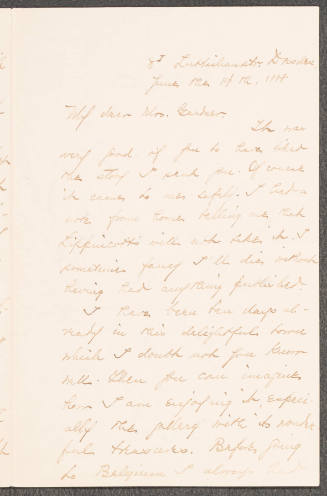 Dresden
June the 14th.
My dear Mrs. Gardner,
It was
very good of you to have liked
the story I sent you. Of course
it came to me safely. I had a
note from home telling me that
Lippincotts will not take it. I
sometimes fancy I'll die without
having had anything published.
I have been ten days al-
ready in this delightful town
which I doubt not you know
well. Then you can imagine
how I am enjoying it especi-
ally the gallery with its wonder-
ful treasures. Before going
to Belgium I always had